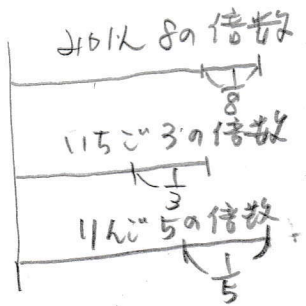 みかん 8の倍数
1/8
いちご 3の倍数
1/3
りんご 5の倍数
1/5